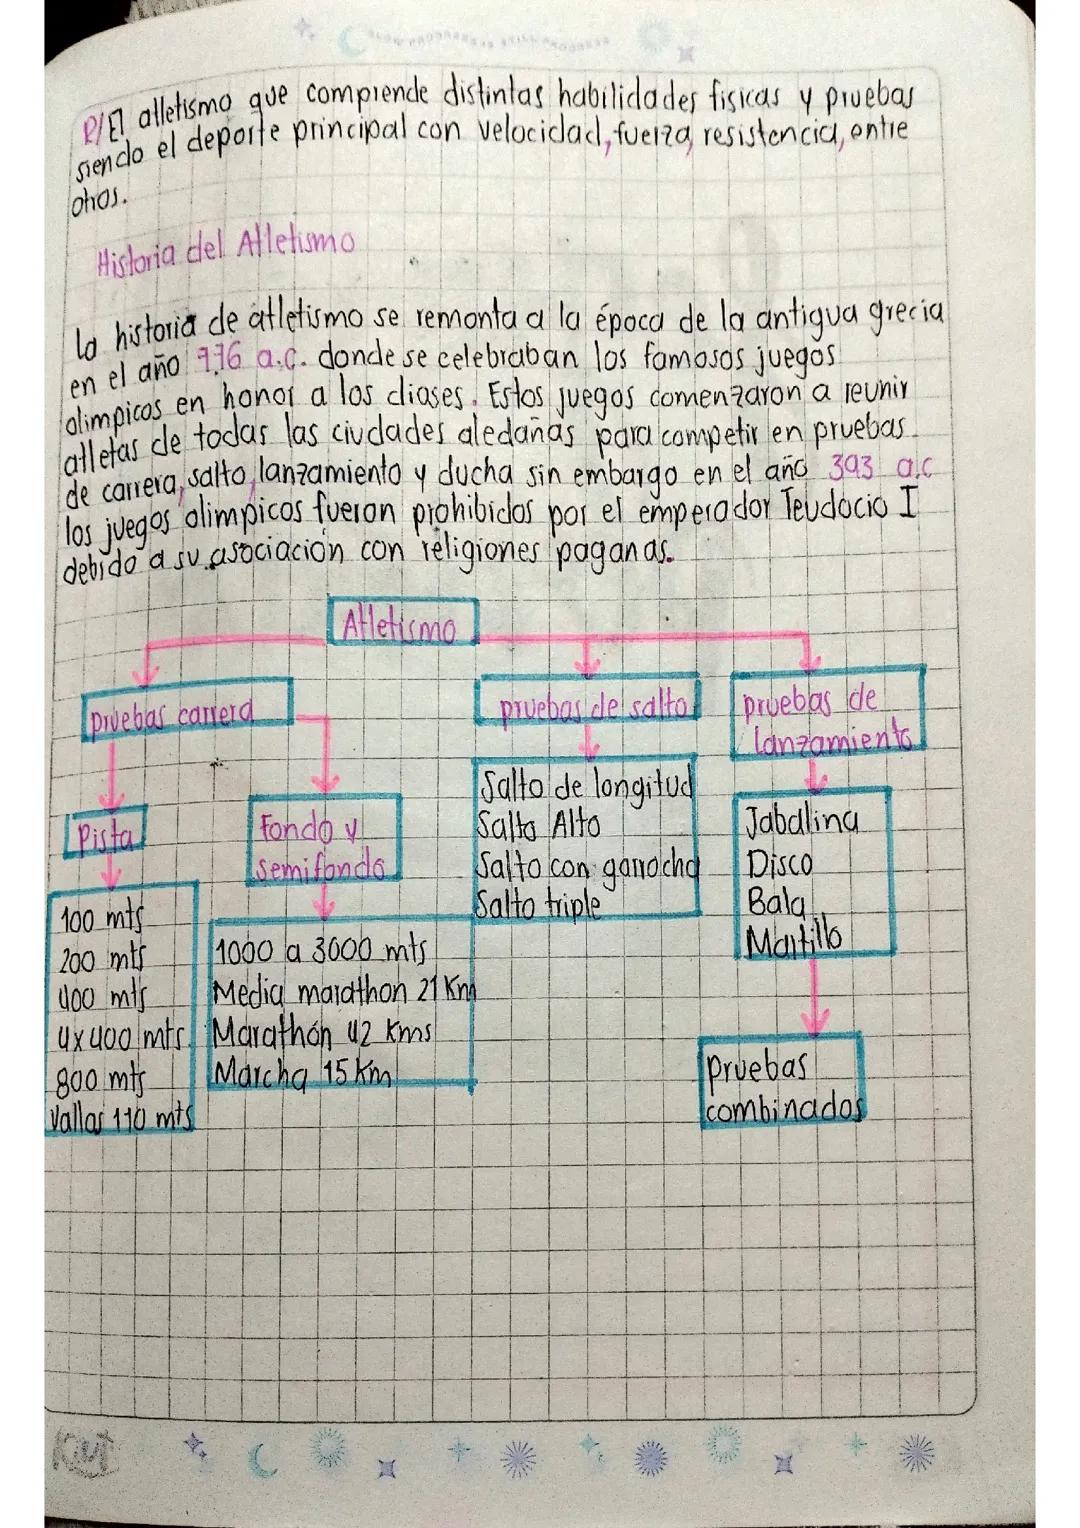 R/El atletismo que comprende distintas habilidades fisicas y pruebas
siendo el deporte principal con velocidad, fuerza, resistencia, entre
otros.
Historia del Atletismo
la historia de atletismo se remonta a la época de la antigua grecia
en el año 776 a.c. donde se celebraban los famosos juegos
olimpicos en honor a los dioses. Estos juegos comenzaron a reunir
atletas de todas las ciudades aledañas para competir en pruebas
de carrera, salto, lanzamiento y ducha sin embargo en el año 393 a.c
los juegos olimpicos fueron prohibidos por el emperador Teudocio I
debido a su asociación con religiones paganas.
Atletismo
pruebas carrera
pruebas de salto
pruebas de
lanzamiento
Pista
Fondo y
semifondo
Salto de longitud
Salto Alto
Salto con garrocha
Salto triple
Jabalina
Disco
Bala
Martillo
100 mts
200 mts
400 mts
4x400 mts
800 mts
Vallas 110 mts
1000 a 3000 mts
Media marathon 21 Km
Marathón 42 Kms
Marcha 15 Km
pruebas
combinados